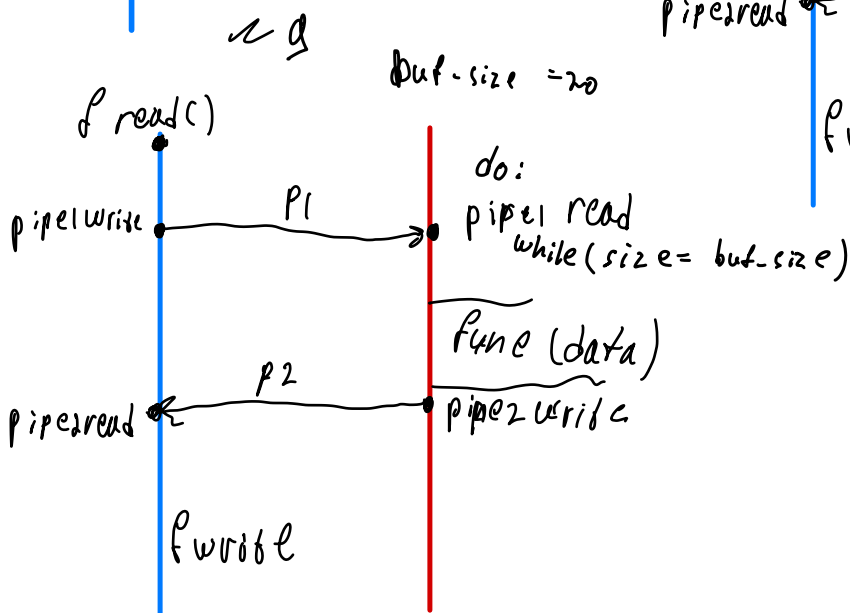 на 9
pipe2read
buf-size = 20
f read()
do:
pipe1 write
P1
pipe1 read
while(size= buf-size)
func (data)
P2
pipe2read
pipe2 write
fwrite